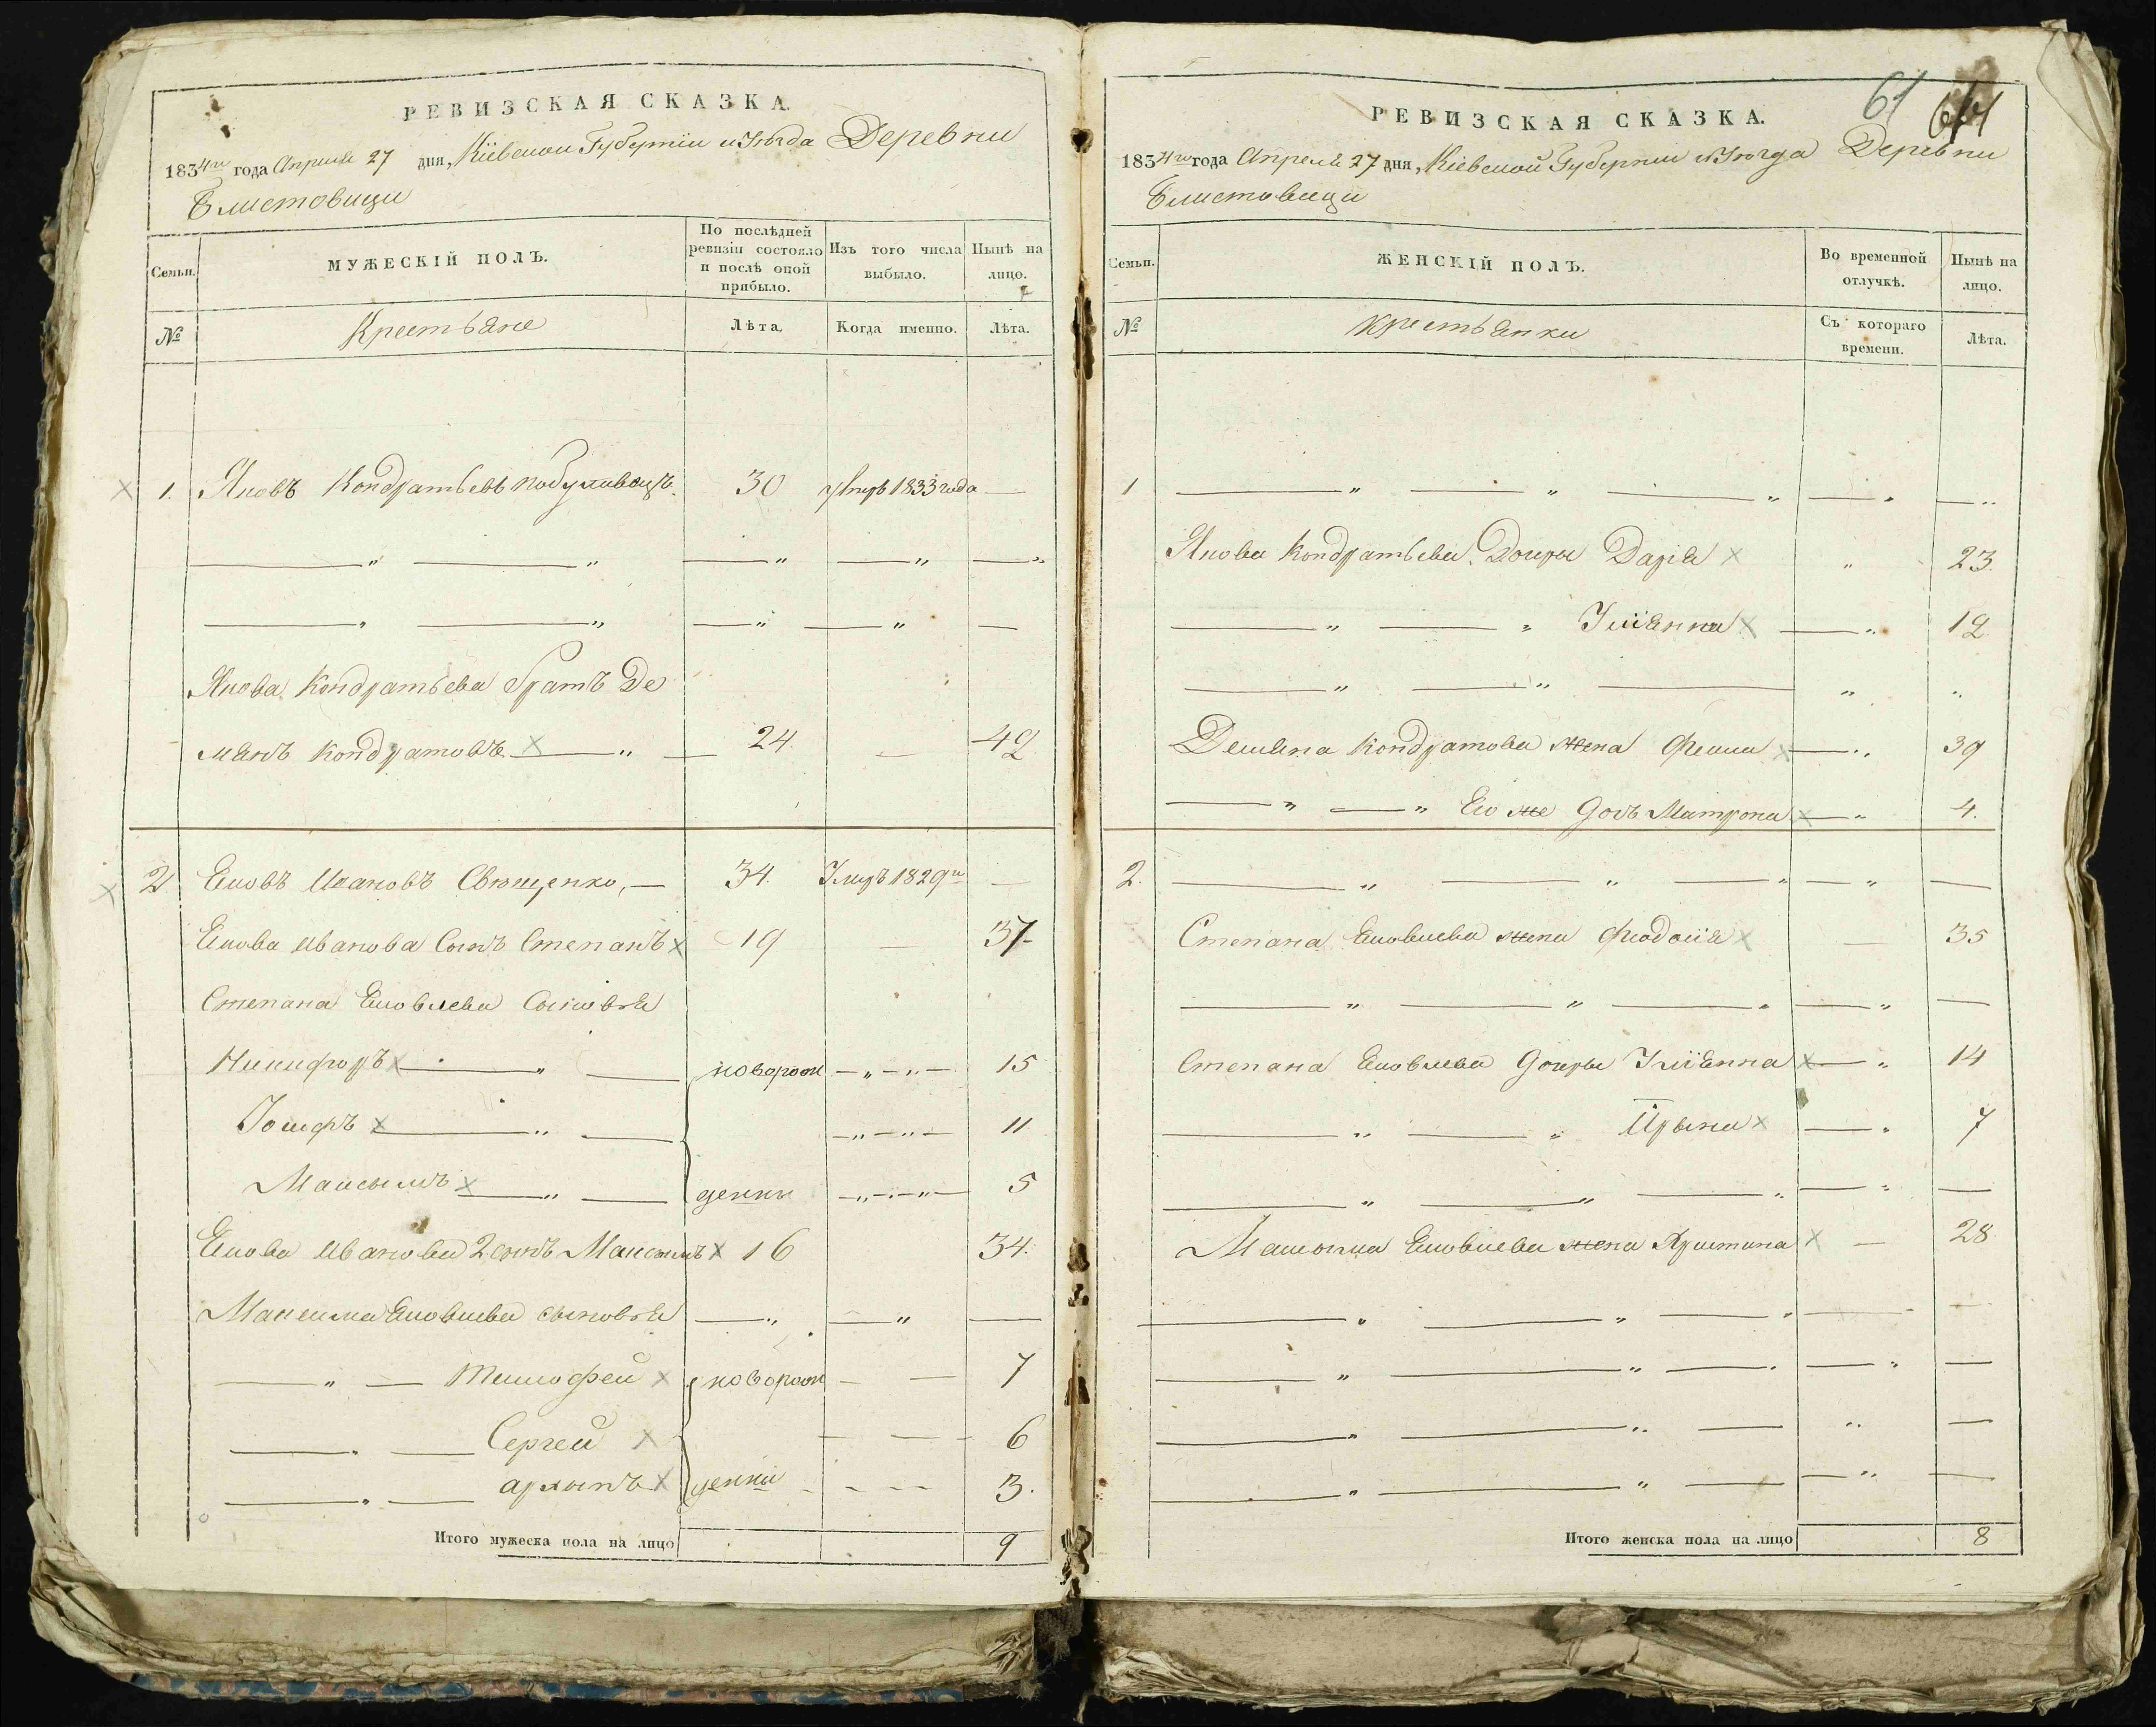 РЕВИЗСКАЯ СКАЗКА.
1834го года Апреля 27 дня, Кіевской Губерніи и Уѣзда Деревни
Блистовици
Семьи.
МУЖЕСКІЙ ПОЛЪ.
По послѣдней ревизіи состояло и послѣ оной прибыло.
Изъ того числа выбыло.
Нынѣ на лицо.
№
Крестьяне
Лѣта.
Когда именно.
Лѣта.
1. Яковъ Кондратьевъ 30 умръ 1833 года —
Якова Кондратьева братъ Де
мянъ Кондратовъ 24. — 42
2 Яковъ Ивановъ Свѣщенко, — 34. Умръ 1829го —
Якова Иванова Сынъ Степанъ 19 — 37
Степана Яковлева Сыновья
Никифоръ новорож 15
Іосифъ 11
Максымъ денни 5
Якова Иванова 2 сынъ Максымъ 16 34.
Максима Яковлева сыновья
Тимофей новорож 7
Сергей 6
архыпъ денни 3.
Итого мужеска пола на лицо 9
РЕВИЗСКАЯ СКАЗКА.
61
1834го года Апреля 27 дня, Кіевской Губерніи и Уѣзда Деревни
Блистовици
Семьи.
ЖЕНСКІЙ ПОЛЪ.
Во временной отлучкѣ.
Нынѣ на лицо.
№
Крестьянки
Съ котораго времени.
Лѣта.
1
Якова Кондратьева Дочеры Дарія 23.
Уліянна 12
Демяна Кондратова жена Фекла 39
Его же Дочъ Матрона 4.
2.
Степана Яковлева жена Феодосія — 35
Степана Яковлева Дочеры Уліянна 14
Ирына 7
Максыма Яковлева жена Христина — 28
Итого женска пола на лицо 8